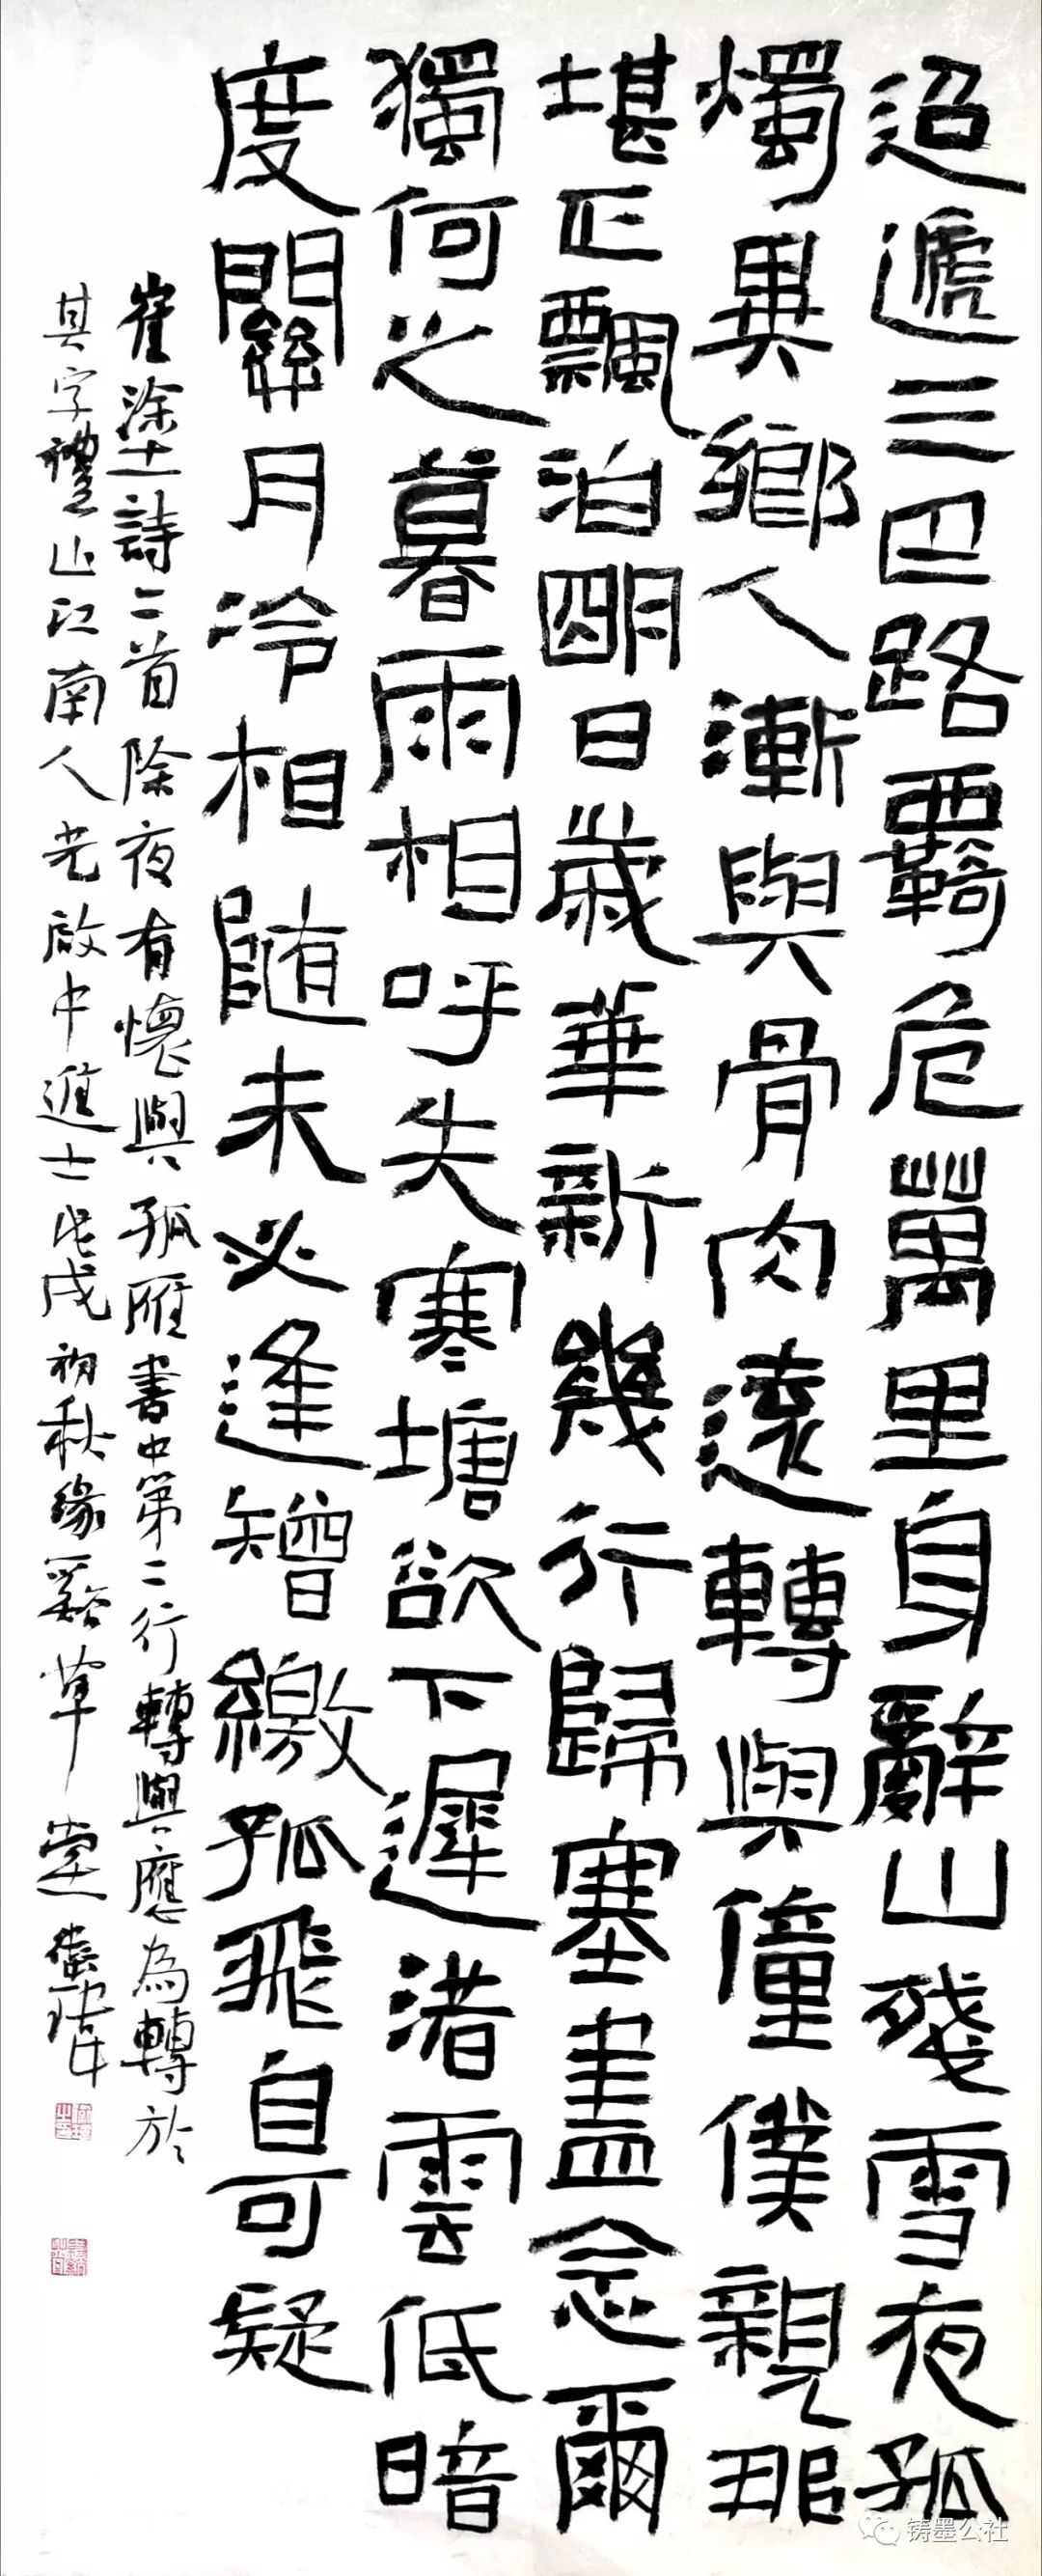 迢遞三巴路羈危萬里身辭山殘雪夜孤
燭異鄉人漸與骨肉遠轉與僮僕親那
堪正飄泊明日歲華新幾行歸塞盡念爾
獨何之暮雨相呼失寒塘欲下遲渚雲低暗
度關月冷相隨未必逢矰繳孤飛自可疑
崔塗詩二首除夜有懷與孤雁書中第二行轉與應為轉於
其字禮山江南人光啟中進士戊戌初秋緣谿草堂
铸墨公社